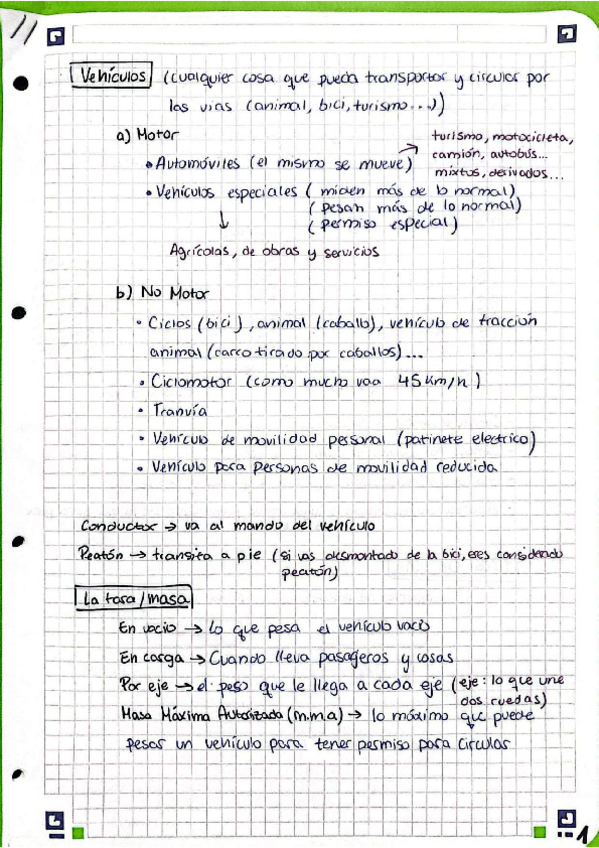 Vehículos (cualquier cosa que pueda transportar y circular por
las vías (animal, bici, turismo...))
a) Motor
• Automóviles (el mismo se mueve) → turismo, motocicleta,
camión, autobús...
mixtos, derivados...
• Vehículos especiales (miden más de lo normal)
(pesan más de lo normal)
(permiso especial)
↓
Agrícolas, de obras y servicios
b) No Motor
• Ciclos (bici), animal (caballo), vehículo de tracción
animal (carro tirado por caballos)...
• Ciclomotor (como mucho vaa 45 Km/h)
• Tranvía
• Vehículo de movilidad personal (patinete electrico)
• Vehículo para personas de movilidad reducida
Conductor → va al mando del vehículo
Peatón → transita a pie (si vas desmontado de la bici, eres considerado
peatón)
La tara/masa
En vacio → lo que pesa el vehículo vacio
En carga → Cuando lleva pasajeros y cosas
Por eje → el peso que le llega a cada eje (eje: lo que une
dos ruedas)
Masa Máxima Autorizada (m.m.a) → lo máximo que puede
pesar un vehículo para tener permiso para circular
1